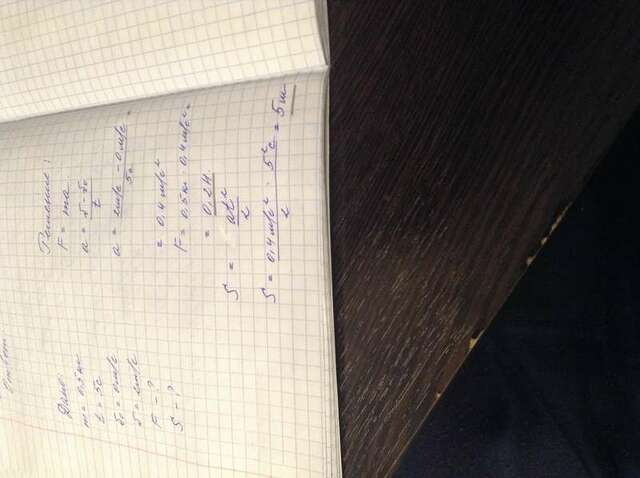 Дано:
m = 0,5 кг
t = 5с
v₀ = 0 м/с
v = 2 м/с
F - ?
S - ?
Решение:
F = ma
a = v - v₀ / t
a = 2 м/с - 0 м/с / 5с =
= 0,4 м/с²
F = 0,5 кг · 0,4 м/с² =
= 0,2 Н
S = at² / 2
S = 0,4 м/с² · 5²с / 2 = 5 м